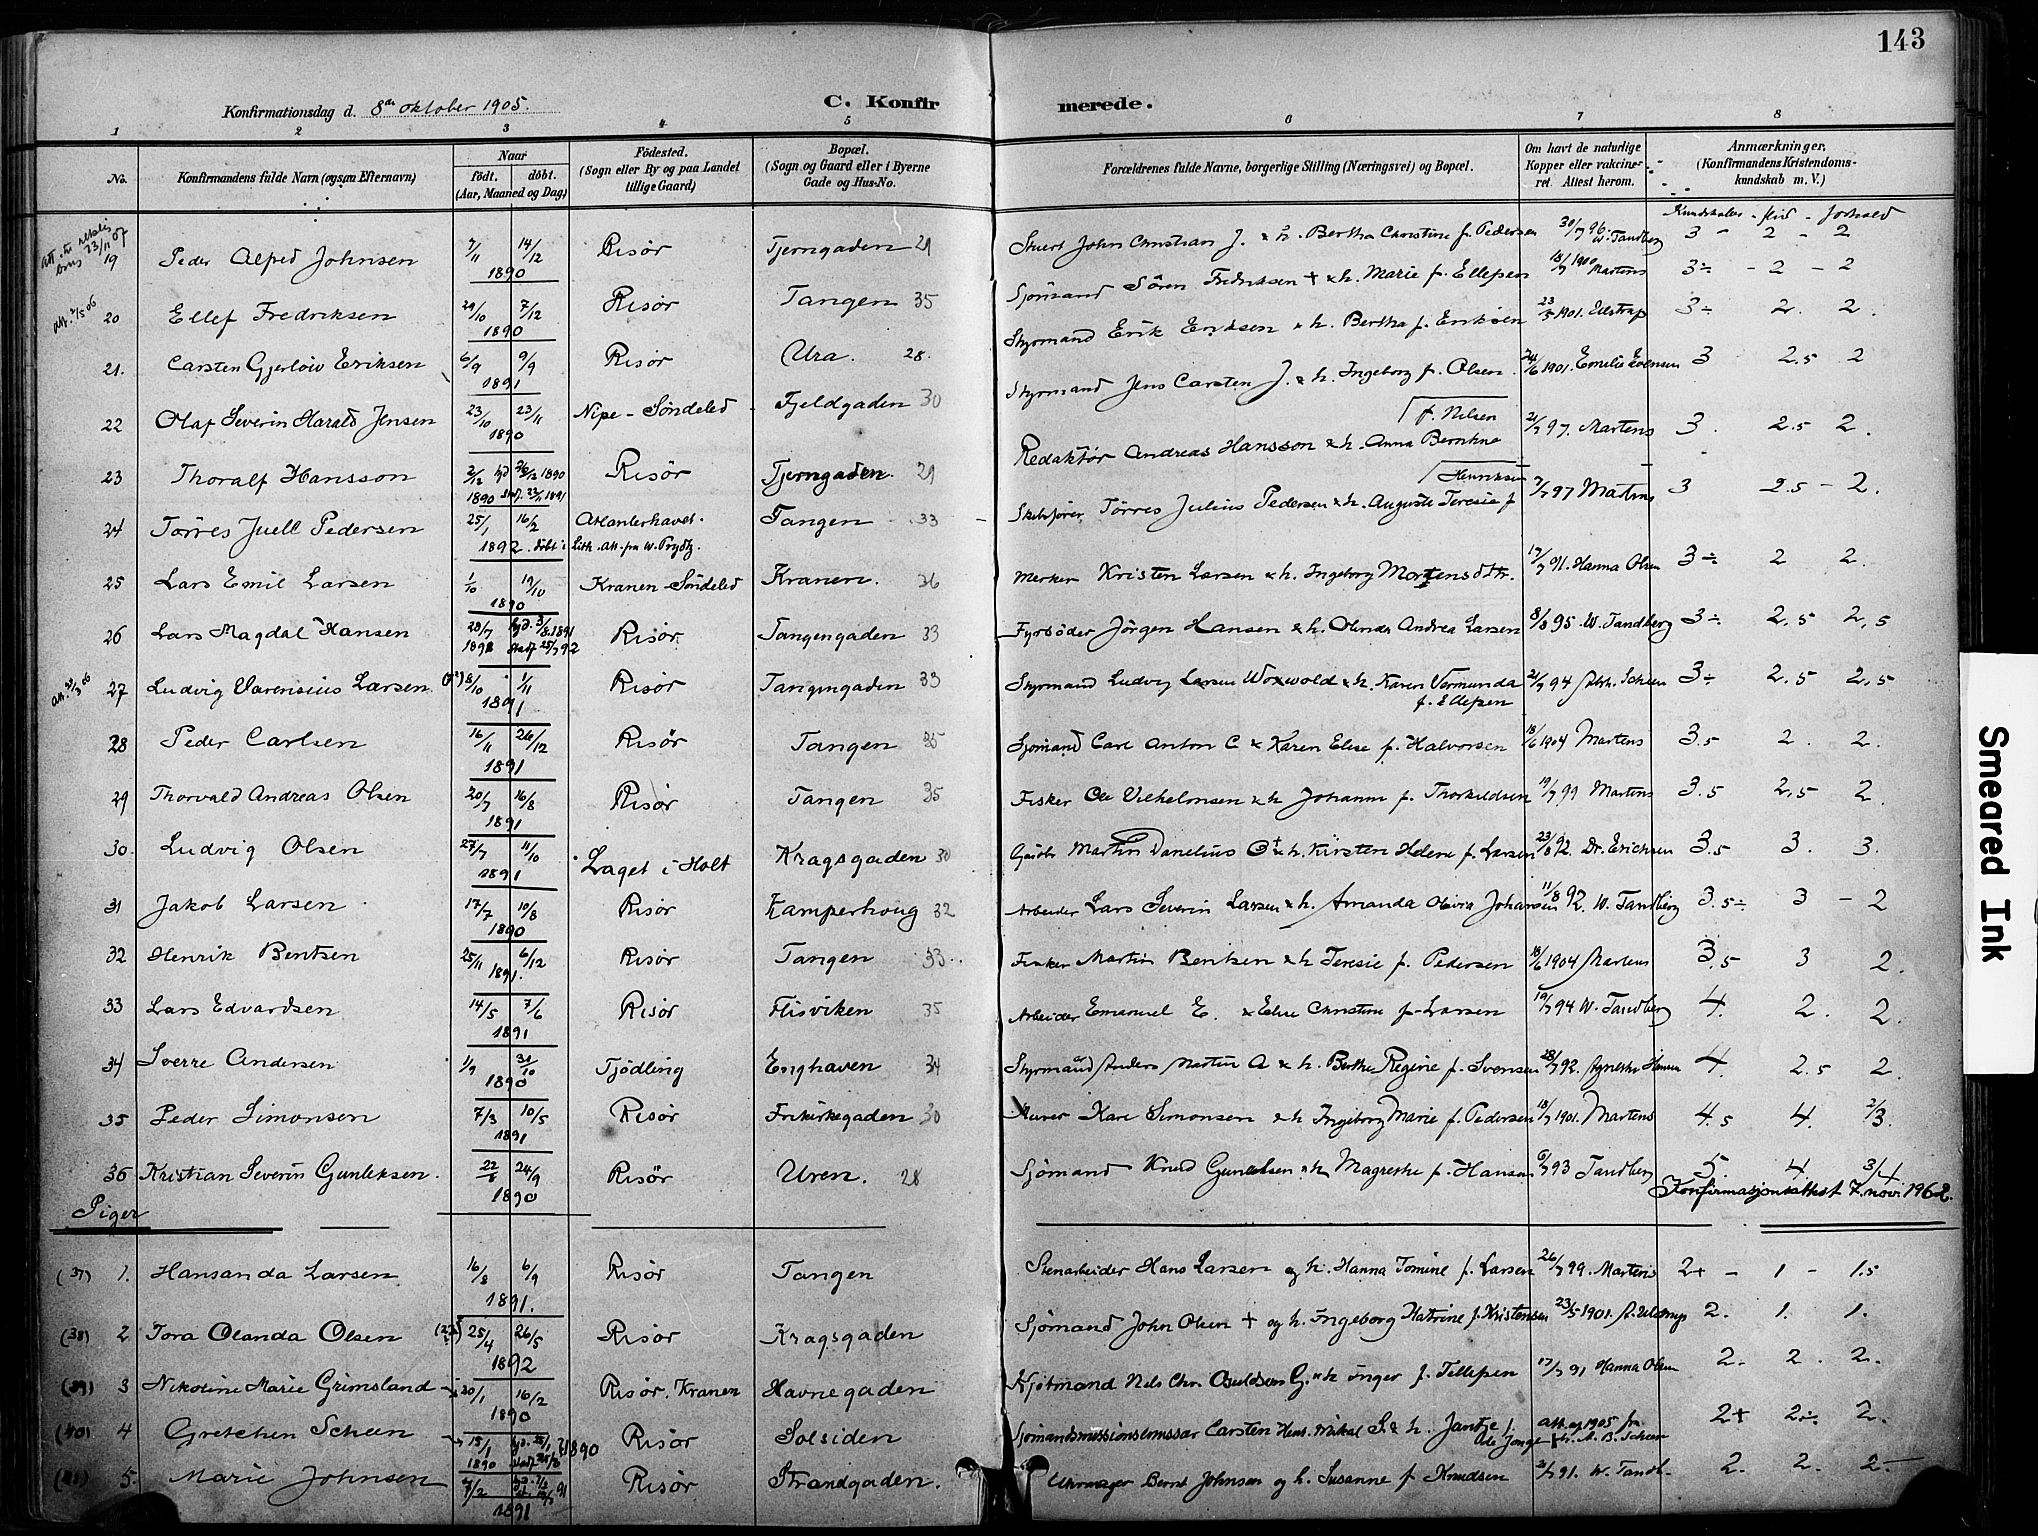 143
Konfirmationsdag d. 8de oktober 1905.
C. Konfirmerede.
1 2 3 4 5 6 7 8
No. Konfirmandens fulde Navn (ogsaa Efternavn) Naar født. døbt. (Aar, Maaned og Dag) Födested. (Sogn eller By og paa Landet tillige Gaard) Bopæl. (Sogn og Gaard eller i Byerne Gade og Hus-No. Forældrenes fulde Navne, borgerlige Stilling (Næringsvei) og Bopæl. Om havt de naturlige Kopper eller vaccineret. Attest herom. Anmærkninger, (Konfirmandens Kristendomskundskab m. V.)
Kundskaber - flid - forhold
19 Peder Alfred Johnsen 7/11 14/12 1890 Risør Tjerngaden 29 Stuert John Christian J. & h. Bertha Christine f. Pedersen 30/7 96 W. Tandberg 3 - 2 - 2
20 Ellef Fredriksen 29/10 7/12 1890 Risør Tangen 35 Sjömand Sören Fredriksen + & h. Marie f. Ellefsen 18/7 1900 Martens 3÷ - 2 - 2
21. Carsten Gjerløw Eriksen 6/9 9/9 1891 Risør Ura. 28. Styrmand Erik Eriksen & h. Bertha f. Eriksen 23/5 1901. Ellstrup 3÷ 2. 2.
22 Olaf Severin Harald Jensen 23/10 23/11 1890 Nipe - Søndeled Fjeldgaden 30 Styrmand Jens Carsten J. & h. Ingeborg f. Olsen 24/6 1901. Emilie Evensen 3 2.5 2
23 Thoralf Hansson 2/12 1890 hjd. 26/12 1890 stadf. 23/11 1891 Risør Tjerngaden. 29 Redaktør Andreas Hansson & h. Anna Bernhne f. Nilsen 21/7 97. Martens 3. 2.5 2.
24 Törres Juell Pedersen 25/1 16/2 1892. døbt i Lith. att. fra W. Prydtz. Atlanterhavet. Tangen 33 Skibsfører Törres Julius Pedersen & h. Auguste Teresie f Henriksen 7/7 97 Martens 3 2.5 - 2.
25 Lars Emil Larsen 1/10 19/10 1890 Kranen - Söndeled Kranen. 36 Merker Kristen Larsen & h. Ingeborg Mortensdtr. 17/7 91. Hanna Olsen 3÷ 2 2.
26 Lars Magdal Hansen 28/7 1891 hjd. 3/8 1891 stadf 25/7 92 Risør. Tangengaden 33 Fyrböder Jörgen Hansen & h. Olinda Andrea Larsen 8/8 95. W. Tandberg 3÷ 2,5 2,5
27 Ludvig Varensius Larsen 8/10 1/11 1891 Risør Tangengaden 33 Styrmand Ludvig Larsen Woxwold & h. Karen Vermunda f. Ellefsen 21/7 94 Abth. Scheen 3÷ 2.5 2,5
28 Peder Carlsen 16/11 26/12 1891 Risør Tangen 35 Sjömand Carl Anton C & Karen Elise f. Halvorsen 18/6 1904 Martens 3.5 2. 2.
29 Thorvald Andreas Olsen 20/7 16/8 1891 Risør Tangen 35 Fisker Ole Vilhelmsen & h Johanne f. Thorkildsen 19/7 99 Martens 3.5 2,5 2.
30. Ludvig Olsen 27/7 11/10 1891 Laget i Holt Kragsgaden 30 Martin Danelius O + & h. Kirsten Helene f. Larsen 23/8 92. Dr. Erichsen 3.5 3. 3.
31 Jakob Larsen 17/7 10/8 1890 Risør Kamperhoug 32 Arbeider Lars Severin Larsen & h. Amanda Olivia Johansen 11/8 92. W. Tandberg 3.5÷ 3 - 2
32 Henrik Bentsen 25/11 6/12 1891. Risør Tangen 33. Fisker Martin Bentsen & h Teresie f. Pedersen 18/6 1904 Martens 3,5 3 2.
33 Lars Edvardsen 14/5 7/6 1891 Risør Flisviken 35 Arbeider Emanuel E. & Elise Christine f. Larsen 19/7 94 W. Tandberg 4. 2. 2.
34 Sverre Andersen 1/9 31/10 1890 Tjödling Enghaven 34 Styrmand Anders Martin A & h. Berthe Regine f. Svensen 28/7 92. Agnethe Hansen 4. 2.5 2.
35 Peder Simonsen 7/3 10/5 1891 Risør Frikirkegaden 30 Murer Karl Simonsen & h Ingeborg Marie f. Pedersen 18/7 1901. Martens 4.5 4. 2/3.
36 Kristian Severin Gunleksen. 22/8 24/9 1890 Risør Uren. 28 Sjömand Knud Gunleksen & h Magrethe f. Hansen 9/7 93 Tandberg 5. 4. 3/4
Konfirmasjonsattest 7. nov. 1962.
Piger
(37) 1. Hansanda Larsen 16/8 6/9 1891. Risør Tangen Stenarbeider Hans Larsen og h. Hanna Tomine f. Larsen 26/7 99. Martens 2+ - 1 - 1.5
(38) 2 Tora Olanda Olsen 25/4 26/5 1892 Risør Kragsgaden Sjömand John Olsen + og h. Ingeborg Katrine f. Kristensen 23/5 1901. 2. 1. 1.
(39) 3 Nikoline Marie Grimsland 30/1 16/2 1890 Risør, Kranen Havnegaden Nels Chr. G. & h Inger f. Tellefsen 17/7 91 Hanna Olsen 2. 2. 2.
(40) 4 Gretchen Scheen 15/1 1890 1890 Risør Solsiden Sjömandsmissionsemissær Carsten Hans Mikal S. & h. Jantje f. de Jonge att. af 1905 fra A. B. Scheen 2+ 2÷. 2.
(41) 5. Marie Johnsen 7/2 1891 Risør Strandgaden. Uhrmager Bernt Johnsen og h. Susanne f. Knudsen 21/7 91. W. Tandb. 2. 2. 2.
Smeared Ink